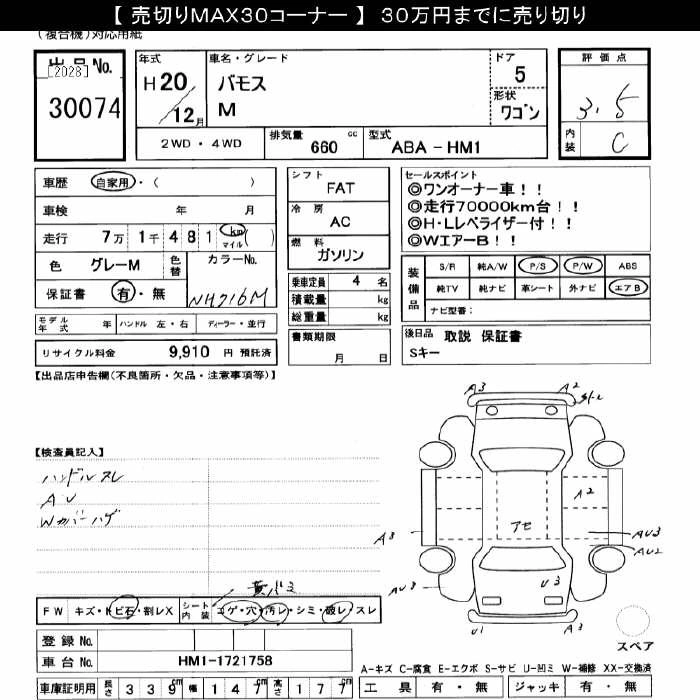 【 売切りMAX30コーナー 】 30万円までに売り切り
(複合機)対応用紙
出品No.
[2028]
30074
年式
H20
12月
車名・グレード
バモス
M
ドア
5
形状
ワゴン
2WD ・ 4WD
排気量
660 cc
型式
ABA - HM1
評価点
3.5
内装
C
車歴 自家用 ・ ( )
車検 年 月
走行 7万 1千 4 8 1 km マイル ( )
色 グレーM 色替
カラーNo.
NH716M
保証書 有 ・ 無
モデル年式 年 ハンドル 左 ・ 右 ディーラー ・ 並行
リサイクル料金 9,910 円 預託済
シフト
FAT
冷房
AC
燃料
ガソリン
乗車定員 4 名
積載量 kg
総重量 kg
書類期限
月 日
セールスポイント
◎ワンオーナー車！！
◎走行70000km台！！
◎H・Lレベライザー付！！
◎WエアーB！！
装備品
S/R 純A/W P/S P/W ABS
純TV 純ナビ 革シート 外ナビ エアB
ナビ型番：
後日品 取説 保証書
Sキー
【出品店申告欄(不良箇所・欠品・注意事項等)】
【検査員記入】
ハンドルスレ
AU
Wカバーハゲ
A3
A2
A2
アセ
A3
AU3
AU2
AU3
U3
U1
A3
スペア
FW キズ・トビ石・割レX シート内装 コゲ・穴・汚レ・シミ・破レ・スレ
登録 No.
車台 No. HM1-1721758
車庫証明用 長さ 339cm 幅 147cm 高さ 177cm
A-キズ C-腐食 E-エクボ S-サビ U-凹ミ W-補修 XX-交換済
工具 有 ・ 無 ジャッキ 有 ・ 無